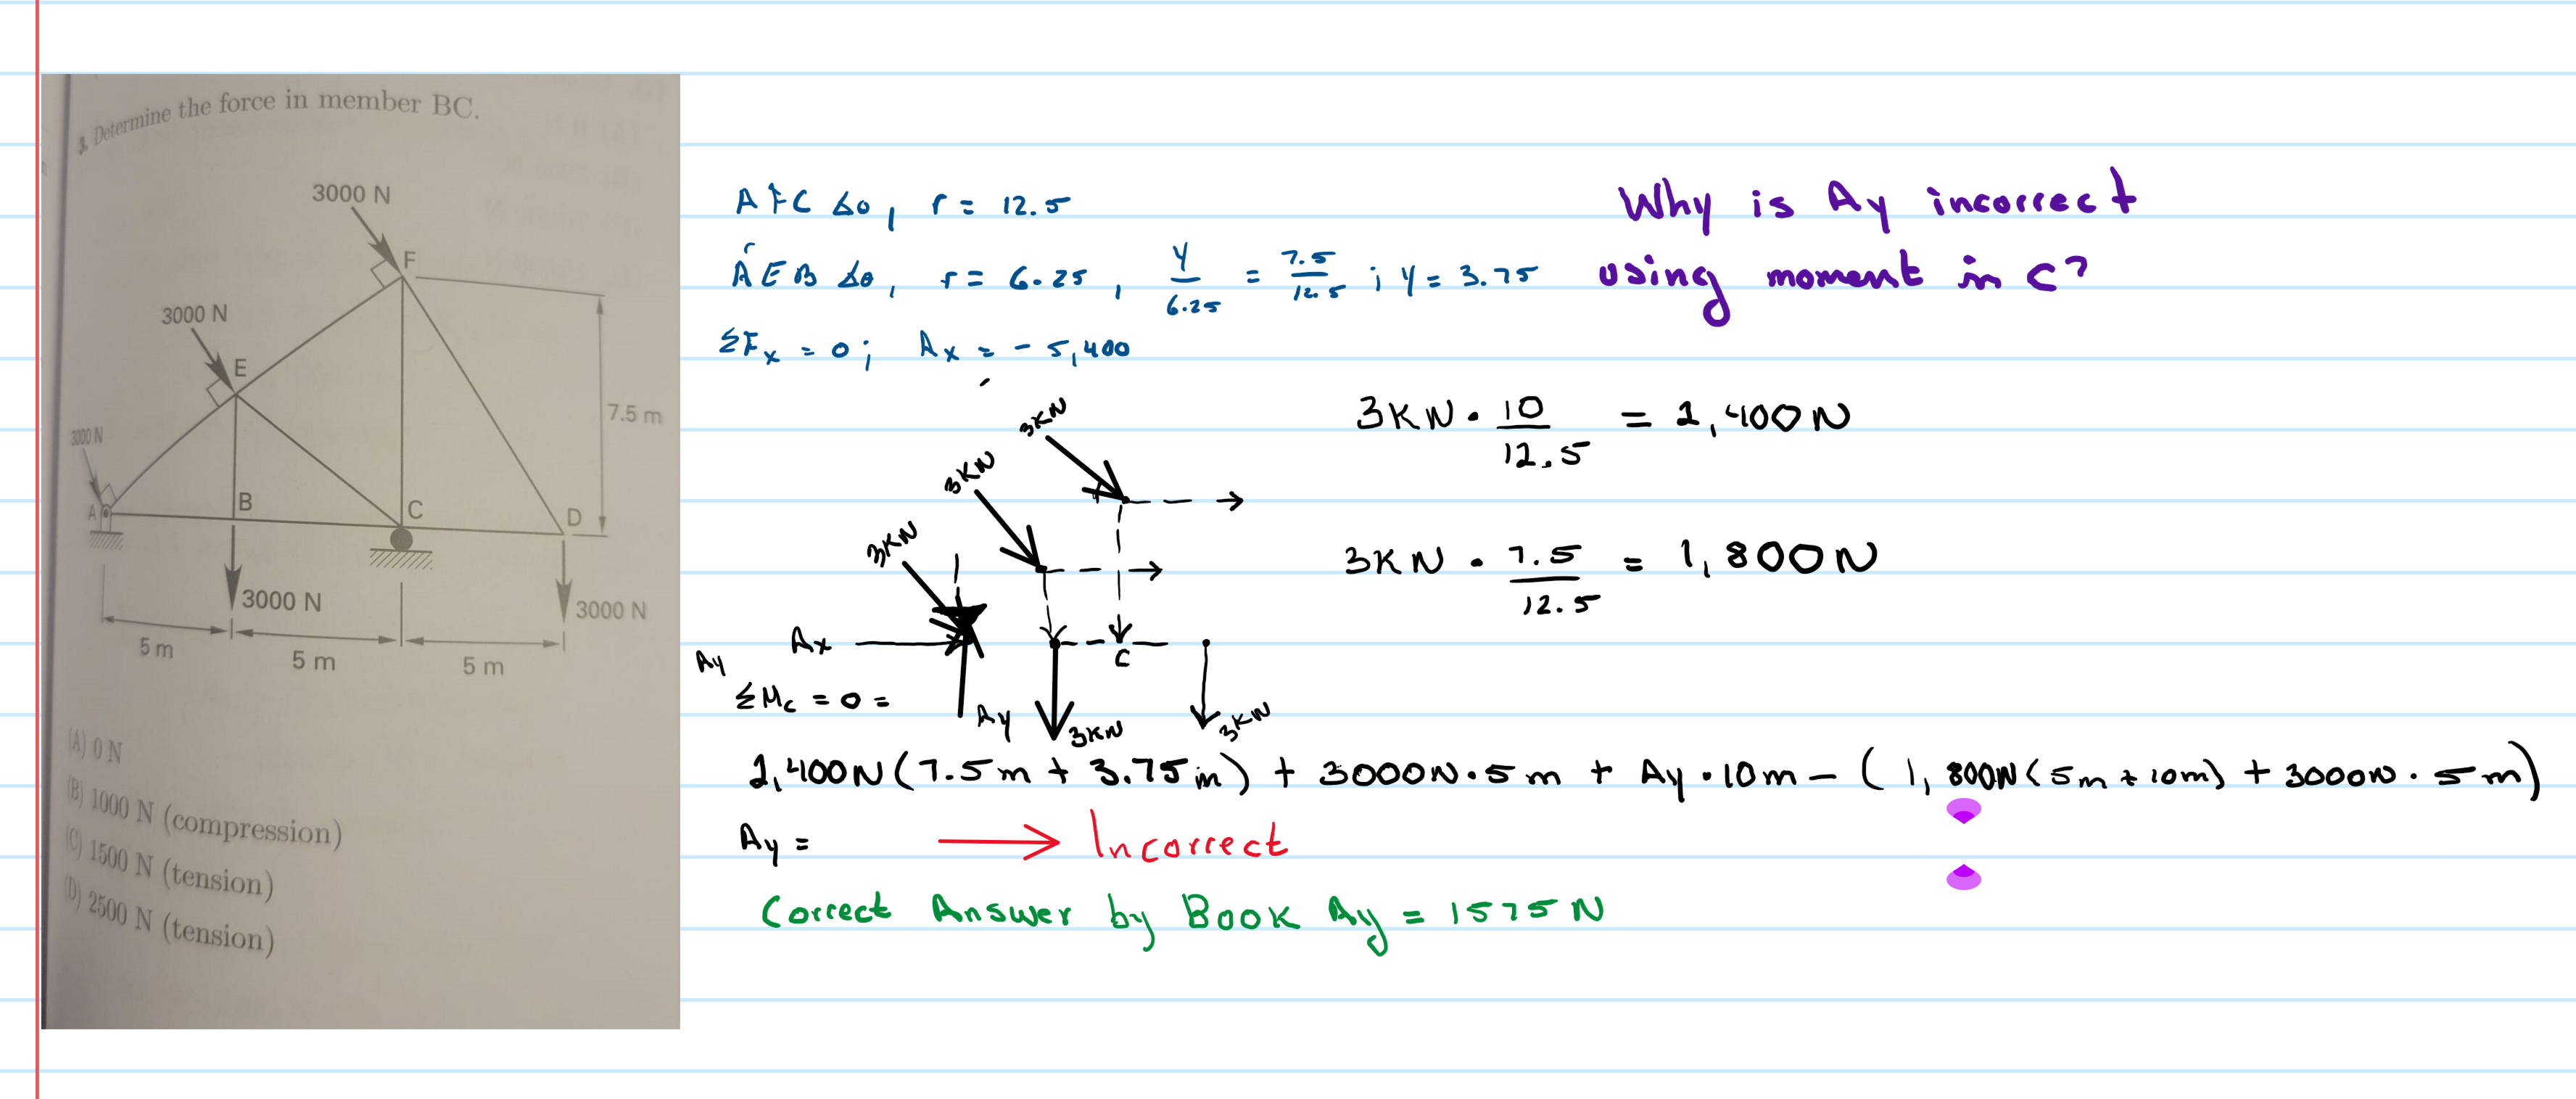 3. Determine the force in member BC.
3000 N
F
3000 N
E
7.5 m
3000 N
A
B
C
D
3000 N
3000 N
5 m
5 m
5 m
(A) 0 N
(B) 1000 N (compression)
(C) 1500 N (tension)
(D) 2500 N (tension)
AFC Δo, r = 12.5
AEB Δo, r = 6.25, Y/6.25 = 7.5/12.5 ; Y = 3.75
ΣFx = 0; Ax = - 5,400
Why is Ay incorrect
using moment in C?
3KN
3KN
3KN
Ax
Ay
C
3KN
3KN
3KN · 10/12.5 = 2,400N
3KN · 7.5/12.5 = 1,800N
Ay
ΣMc = 0 =
2,400N(7.5m + 3.75m) + 3000N·5m + Ay·10m - (1,800N(5m + 10m) + 3000N·5m)
Ay = → Incorrect
Correct Answer by Book Ay = 1575N